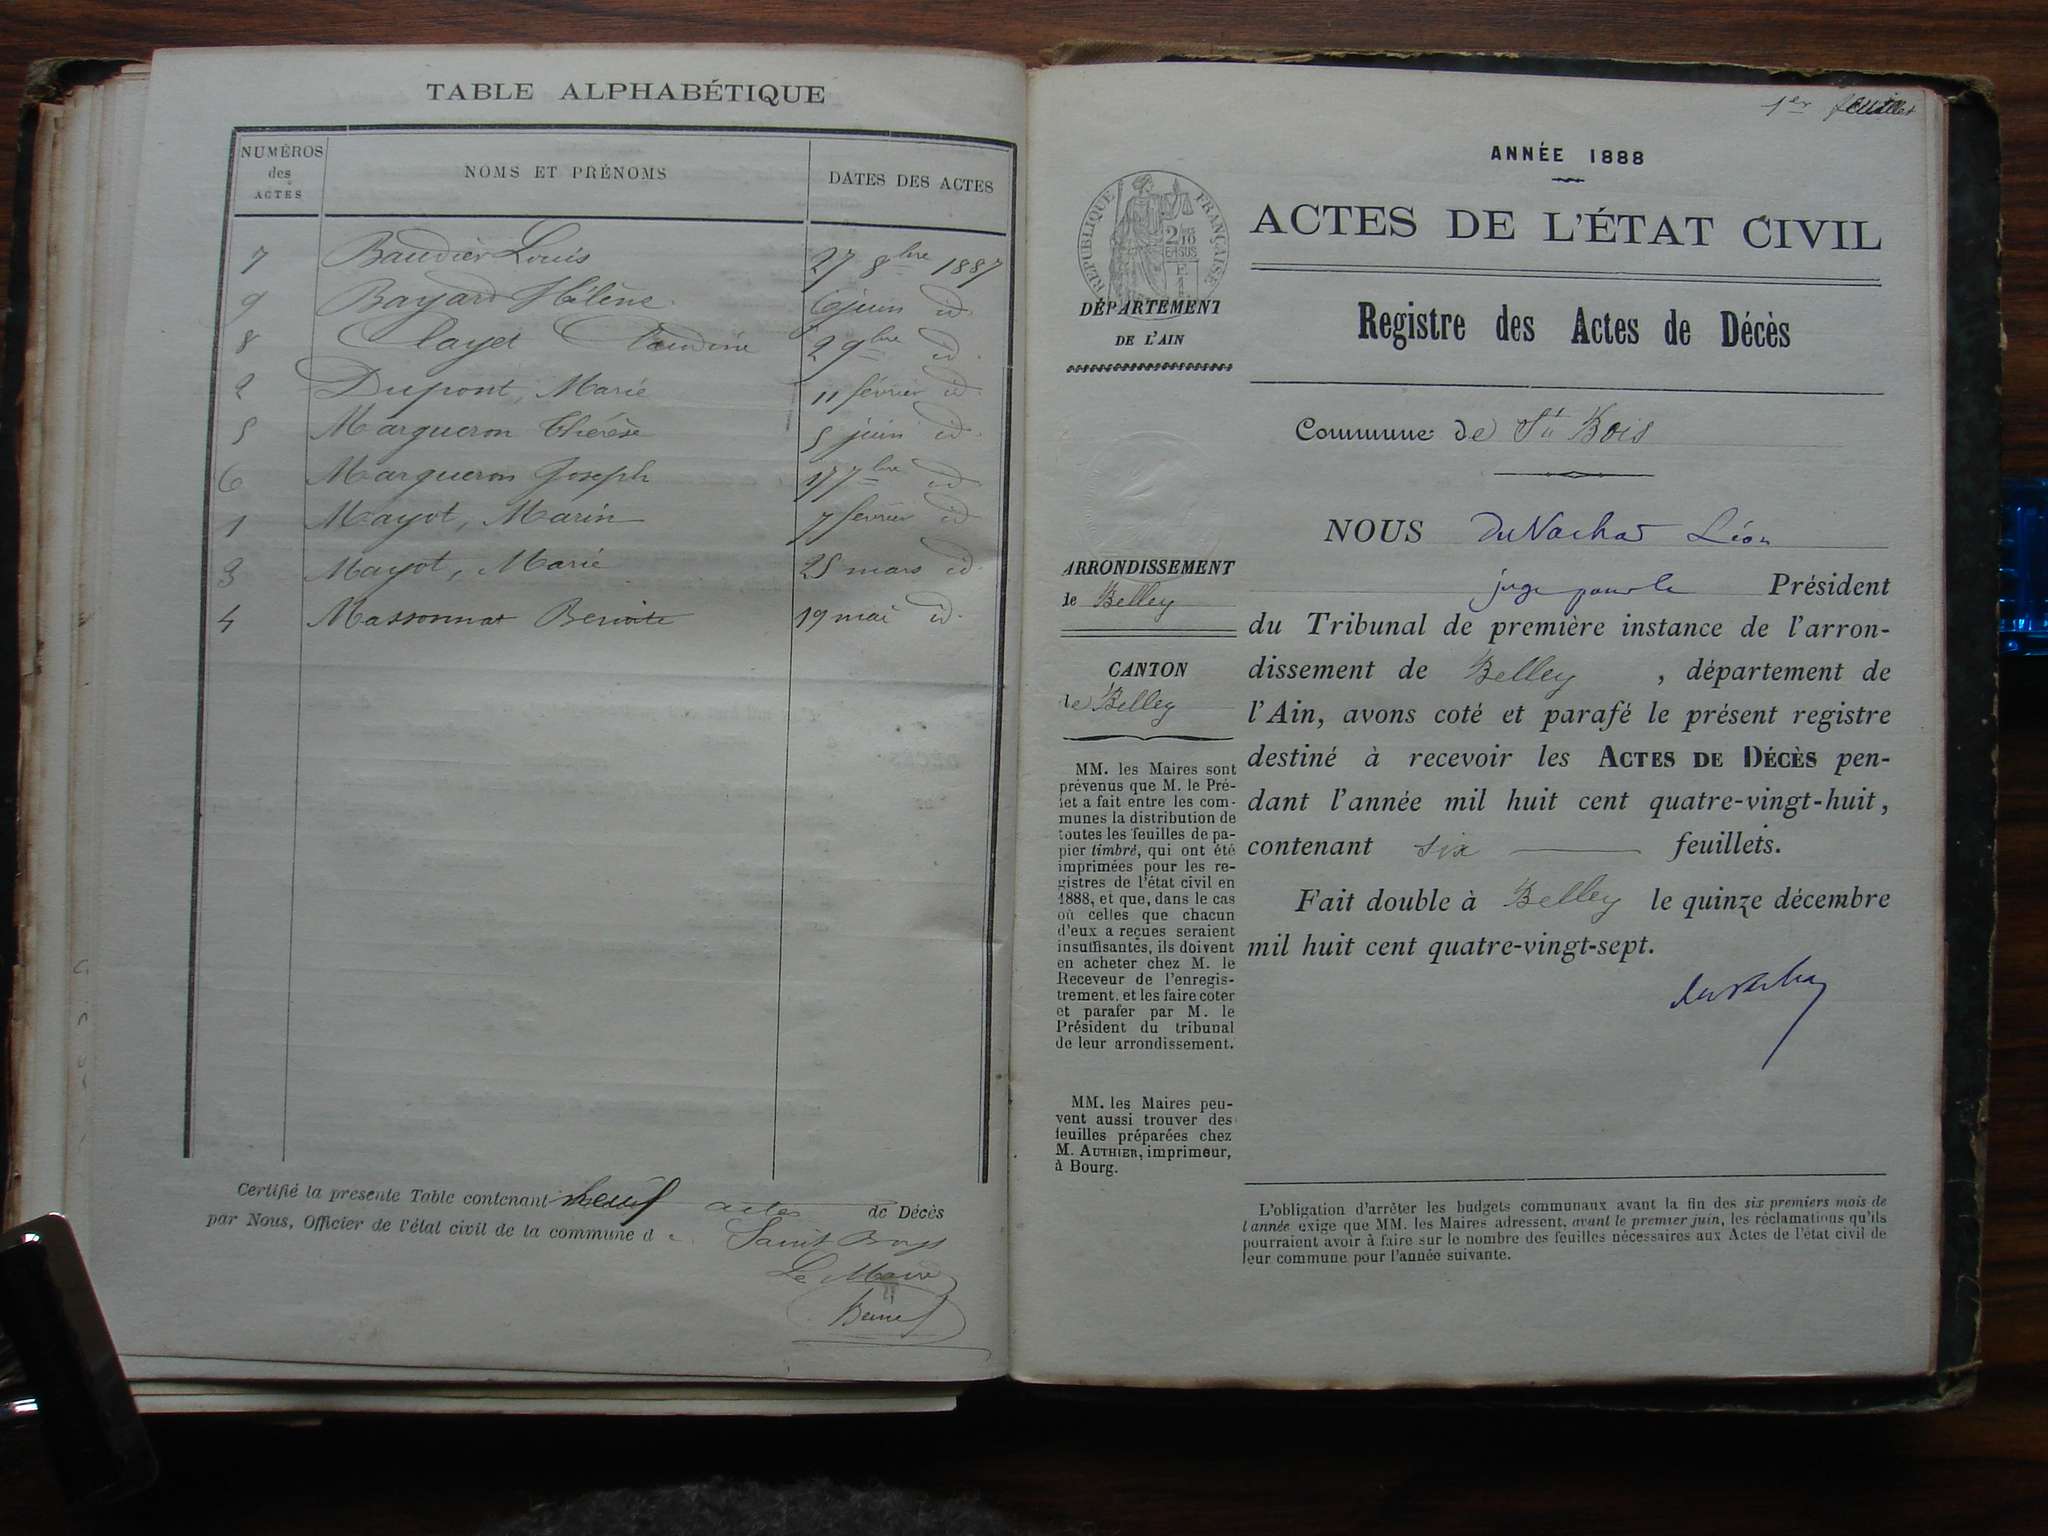 TABLE ALPHABÉTIQUE
NUMÉROS des ACTES NOMS ET PRÉNOMS DATES DES ACTES
7 Baudier Louis 27 8bre 1887
9 Bayard Hélène 6 juin id.
8 Clayet Claudine 2 9bre id.
2 Dupont, Marie 11 février id.
5 Margueron Thérèse 5 juin id.
6 Margueron Joseph 17 7bre id.
1 Mayot, Marin 7 février id.
3 Mayot, Marie 25 mars id.
4 Massonnat Benoite 19 mai id.
Certifié la présente Table contenant neuf actes de Décès
par Nous, Officier de l'état civil de la commune de Saint Boys
Le Maire
1er feuillet
ANNÉE 1888
RÉPUBLIQUE FRANÇAISE
2/10 EN SUS
ACTES DE L'ÉTAT CIVIL
DÉPARTEMENT
DE L'AIN
Registre des Actes de Décès
Commune de St Bois
NOUS DuNachat Léon
juge pour le Président
ARRONDISSEMENT
de Belley
du Tribunal de première instance de l'arron-
dissement de Belley, département de
CANTON
de Belley
l'Ain, avons coté et parafé le présent registre
destiné à recevoir les ACTES DE DÉCÈS pen-
dant l'année mil huit cent quatre-vingt-huit,
contenant six feuillets.
Fait double à Belley le quinze décembre
mil huit cent quatre-vingt-sept.
MM. les Maires sont
prévenus que M. le Pré-
fet a fait entre les com-
munes la distribution de
toutes les feuilles de pa-
pier timbré, qui ont été
imprimées pour les re-
gistres de l'état civil en
1888, et que, dans le cas
où celles que chacun
d'eux a reçues seraient
insuffisantes, ils doivent
en acheter chez M. le
Receveur de l'enregis-
trement, et les faire coter
et parafer par M. le
Président du tribunal
de leur arrondissement.
MM. les Maires peu-
vent aussi trouver des
feuilles préparées chez
M. AUTHIER, imprimeur,
à Bourg.
L'obligation d'arrêter les budgets communaux avant la fin des six premiers mois de
l'année exige que MM. les Maires adressent, avant le premier juin, les réclamations qu'ils
pourraient avoir à faire sur le nombre des feuilles nécessaires aux Actes de l'état civil de
leur commune pour l'année suivante.